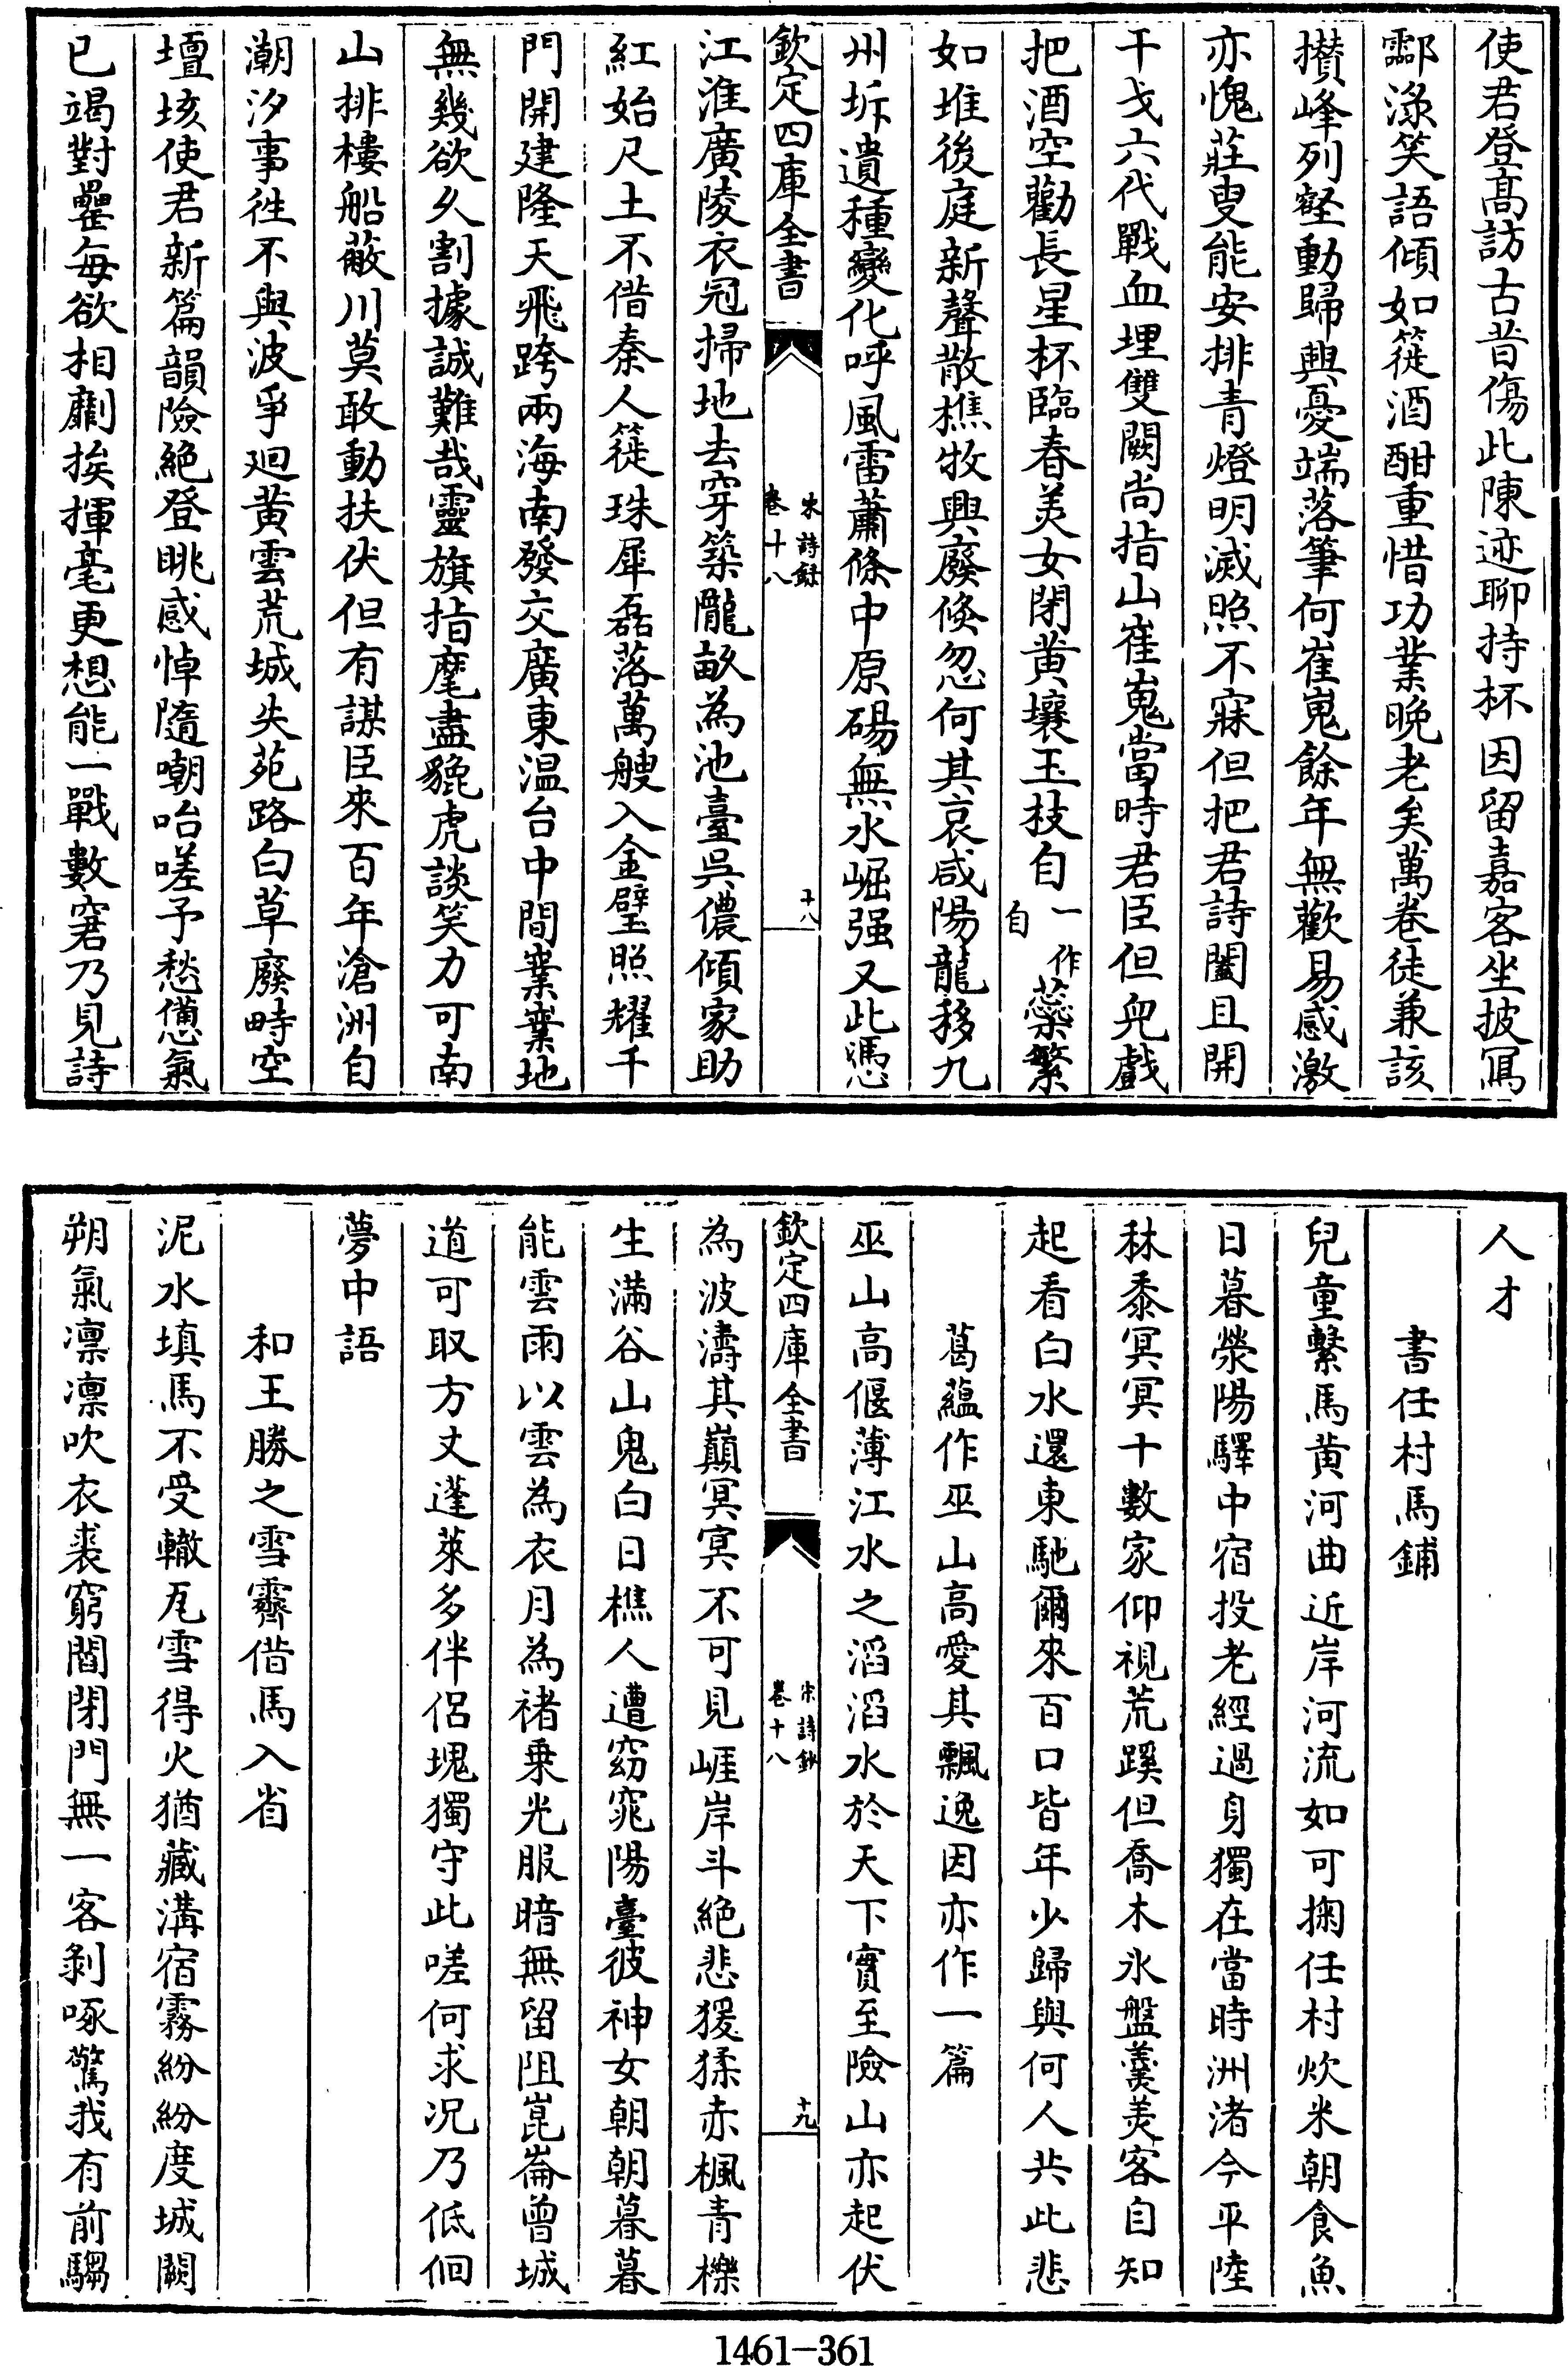 使君登高訪古昔傷此陳迹聊持杯因留嘉客坐披寫
酃渌笑語傾如簁酒酣重惜功業晚老矣萬卷徒兼該
攅峰列壑動歸興憂端落筆何崔嵬餘年無歡易感激
亦愧莊叟能安排青燈明滅照不寐但把君詩闔且開
干戈六代戰血埋雙闕尚指山崔嵬當時君臣但兒戲
把酒空勸長星杯臨春美女閉黄壤玉枝自一作自蘂繁
如堆後庭新聲散樵牧興廢倐忽何其哀咸陽龍移九
州坼遺種變化呼風雷蕭條中原碭無水崛强又此憑
欽定四庫全書
宋詩鈔
卷十八
十八
江淮廣陵衣冠掃地去穿築隴畝為池臺吳儂傾家助
紅始尺土不借秦人簁珠犀磊落萬艘入金璧照耀千
門開建隆天飛跨兩海南發交廣東温台中間嶪嶪地
無幾欲乆割據誠難哉靈旗指麾盡貔虎談笑力可南
山排樓船蔽川莫敢動扶伏但有謀臣來百年滄洲自
潮汐事徃不與波爭廻黄雲荒城失苑路白草廢畤空
壇垓使君新篇韻險絶登眺感悼隨嘲咍嗟予愁憊氣
已竭對壘每欲相劘挨揮毫更想能一戰數窘乃見詩
人才
書任村馬鋪
兒童繫馬黄河曲近岸河流如可掬任村炊米朝食魚
日暮滎陽驛中宿投老經過身獨在當時洲渚今平陸
秫黍冥冥十數家仰視荒蹊但喬木氷盤羮美客自知
起看白水還東馳爾來百口皆年少歸與何人共此悲
葛蘊作巫山高愛其飄逸因亦作一篇
巫山高偃薄江水之滔滔水於天下實至險山亦起伏
欽定四庫全書
宋詩鈔
卷十八
十九
為波濤其巔冥冥不可見崕岸斗絶悲猨猱赤楓青櫟
生滿谷山鬼白日樵人遭窈窕陽臺彼神女朝朝暮暮
能雲雨以雲為衣月為褚乗光服暗無留阻崑崙曾城
道可取方丈蓬萊多伴侶塊獨守此嗟何求况乃低徊
夢中語
和王勝之雪霽借馬入省
泥水填馬不受轍瓦雪得火猶藏溝宿霧紛紛度城闕
朔氣凛凛吹衣裘窮閻閉門無一客剝啄驚我有前騶
1461-361